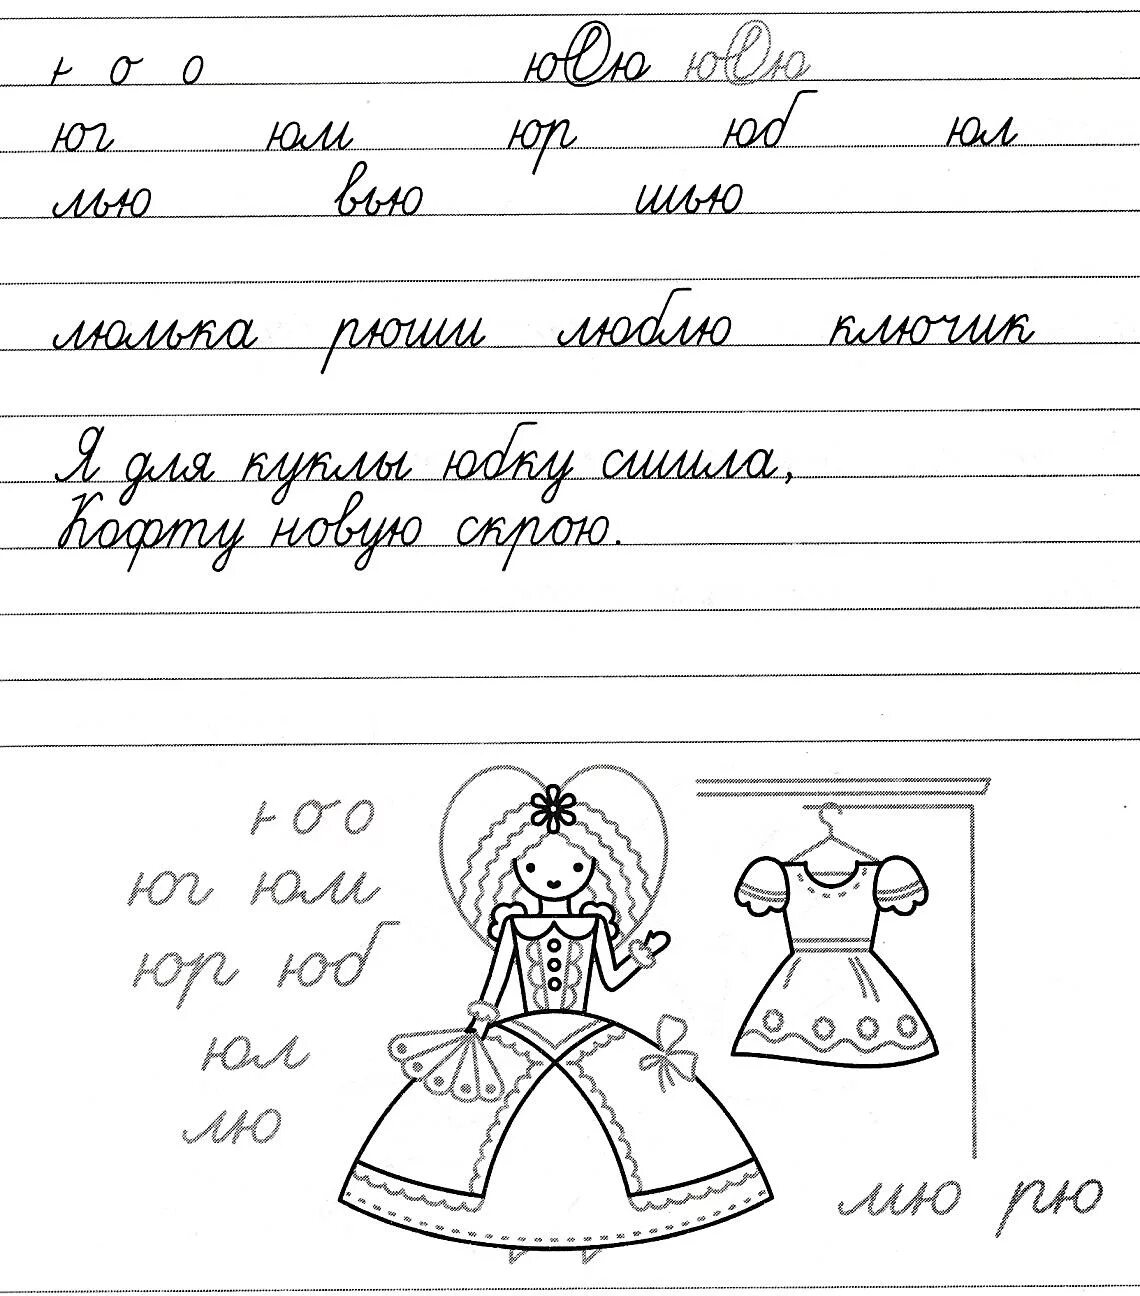 ю о о юОю юОю
юг юм юр юб юл
лью вью шью
люлька рюши люблю ключик
Я для куклы юбку сшила,
Кофту новую скрою.
ю о о
юг юм
юр юб
юл
лю
мю рю